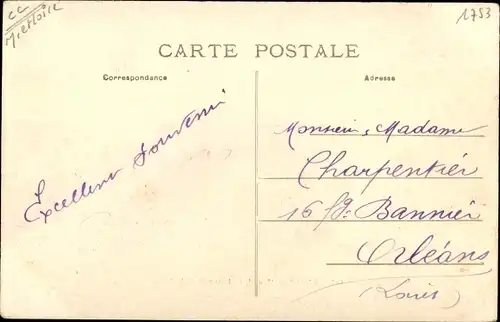 1753
CARTE POSTALE
Correspondance
Adresse
Excellent Souvenir
Monsieur, Madame
Charpentier
16 fg: Bannier
Orléans
(Loiret)